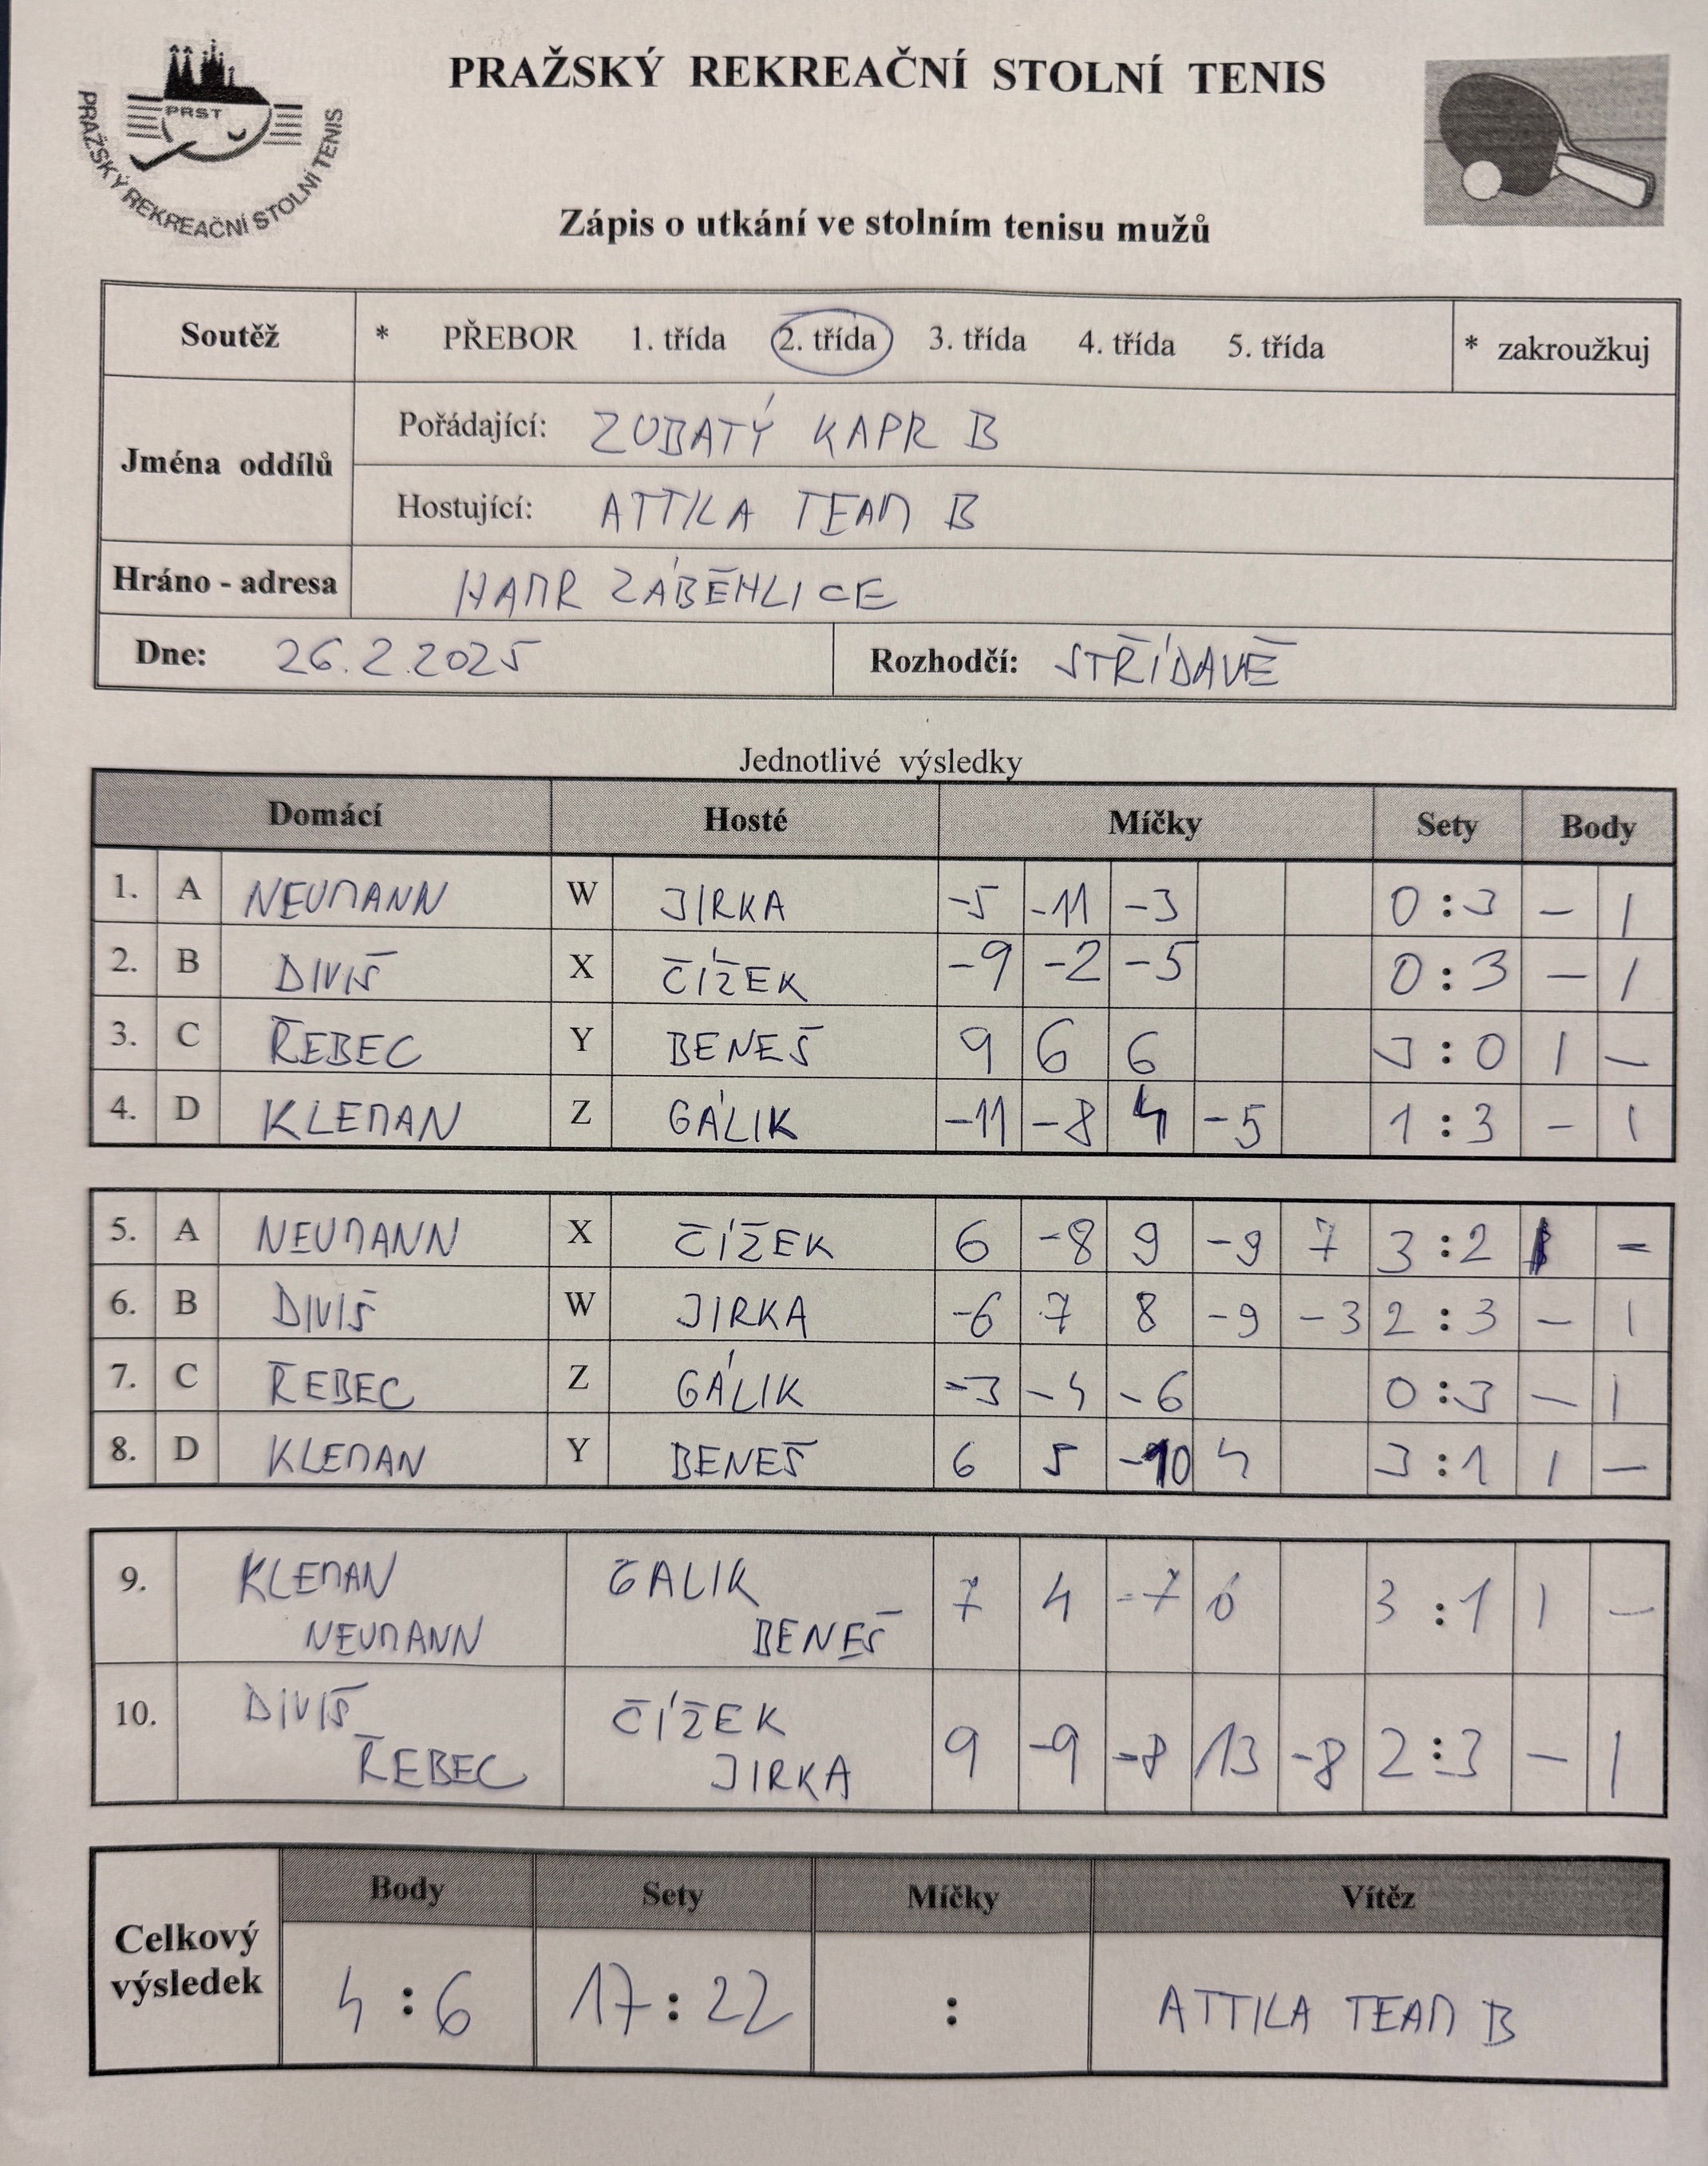 PRAŽSKÝ REKREAČNÍ STOLNÍ TENIS
PRST
PRAŽSKÝ REKREAČNÍ STOLNÍ TENIS
Zápis o utkání ve stolním tenisu mužů
Soutěž * PŘEBOR 1. třída 2. třída 3. třída 4. třída 5. třída * zakroužkuj
Jména oddílů
Pořádající: ZUBATÝ KAPR B
Hostující: ATTILA TEAM B
Hráno - adresa HAMR ZÁBĚHLICE
Dne: 26.2.2025 Rozhodčí: STŘÍDAVĚ
Jednotlivé výsledky
Domácí Hosté Míčky Sety Body
1. A NEUMANN W JIRKA -5 -11 -3 0 : 3 - 1
2. B DIVIŠ X ČÍŽEK -9 -2 -5 0 : 3 - 1
3. C ŘEBEC Y BENEŠ 9 6 6 3 : 0 1 -
4. D KLEMAN Z GÁLIK -11 -8 4 -5 1 : 3 - 1
5. A NEUMANN X ČÍŽEK 6 -8 9 -9 7 3 : 2 1 -
6. B DIVIŠ W JIRKA -6 7 8 -9 -3 2 : 3 - 1
7. C ŘEBEC Z GÁLIK -3 -4 -6 0 : 3 - 1
8. D KLEMAN Y BENEŠ 6 5 -10 4 3 : 1 1 -
9. KLEMAN GALIK 7 4 -7 6 3 : 1 1 -
NEUMANN BENEŠ
10. DIVIŠ ČÍŽEK
ŘEBEC JIRKA 9 -9 -8 13 -8 2 : 3 - 1
Body Sety Míčky Vítěz
Celkový výsledek 4 : 6 17 : 22 : ATTILA TEAM B